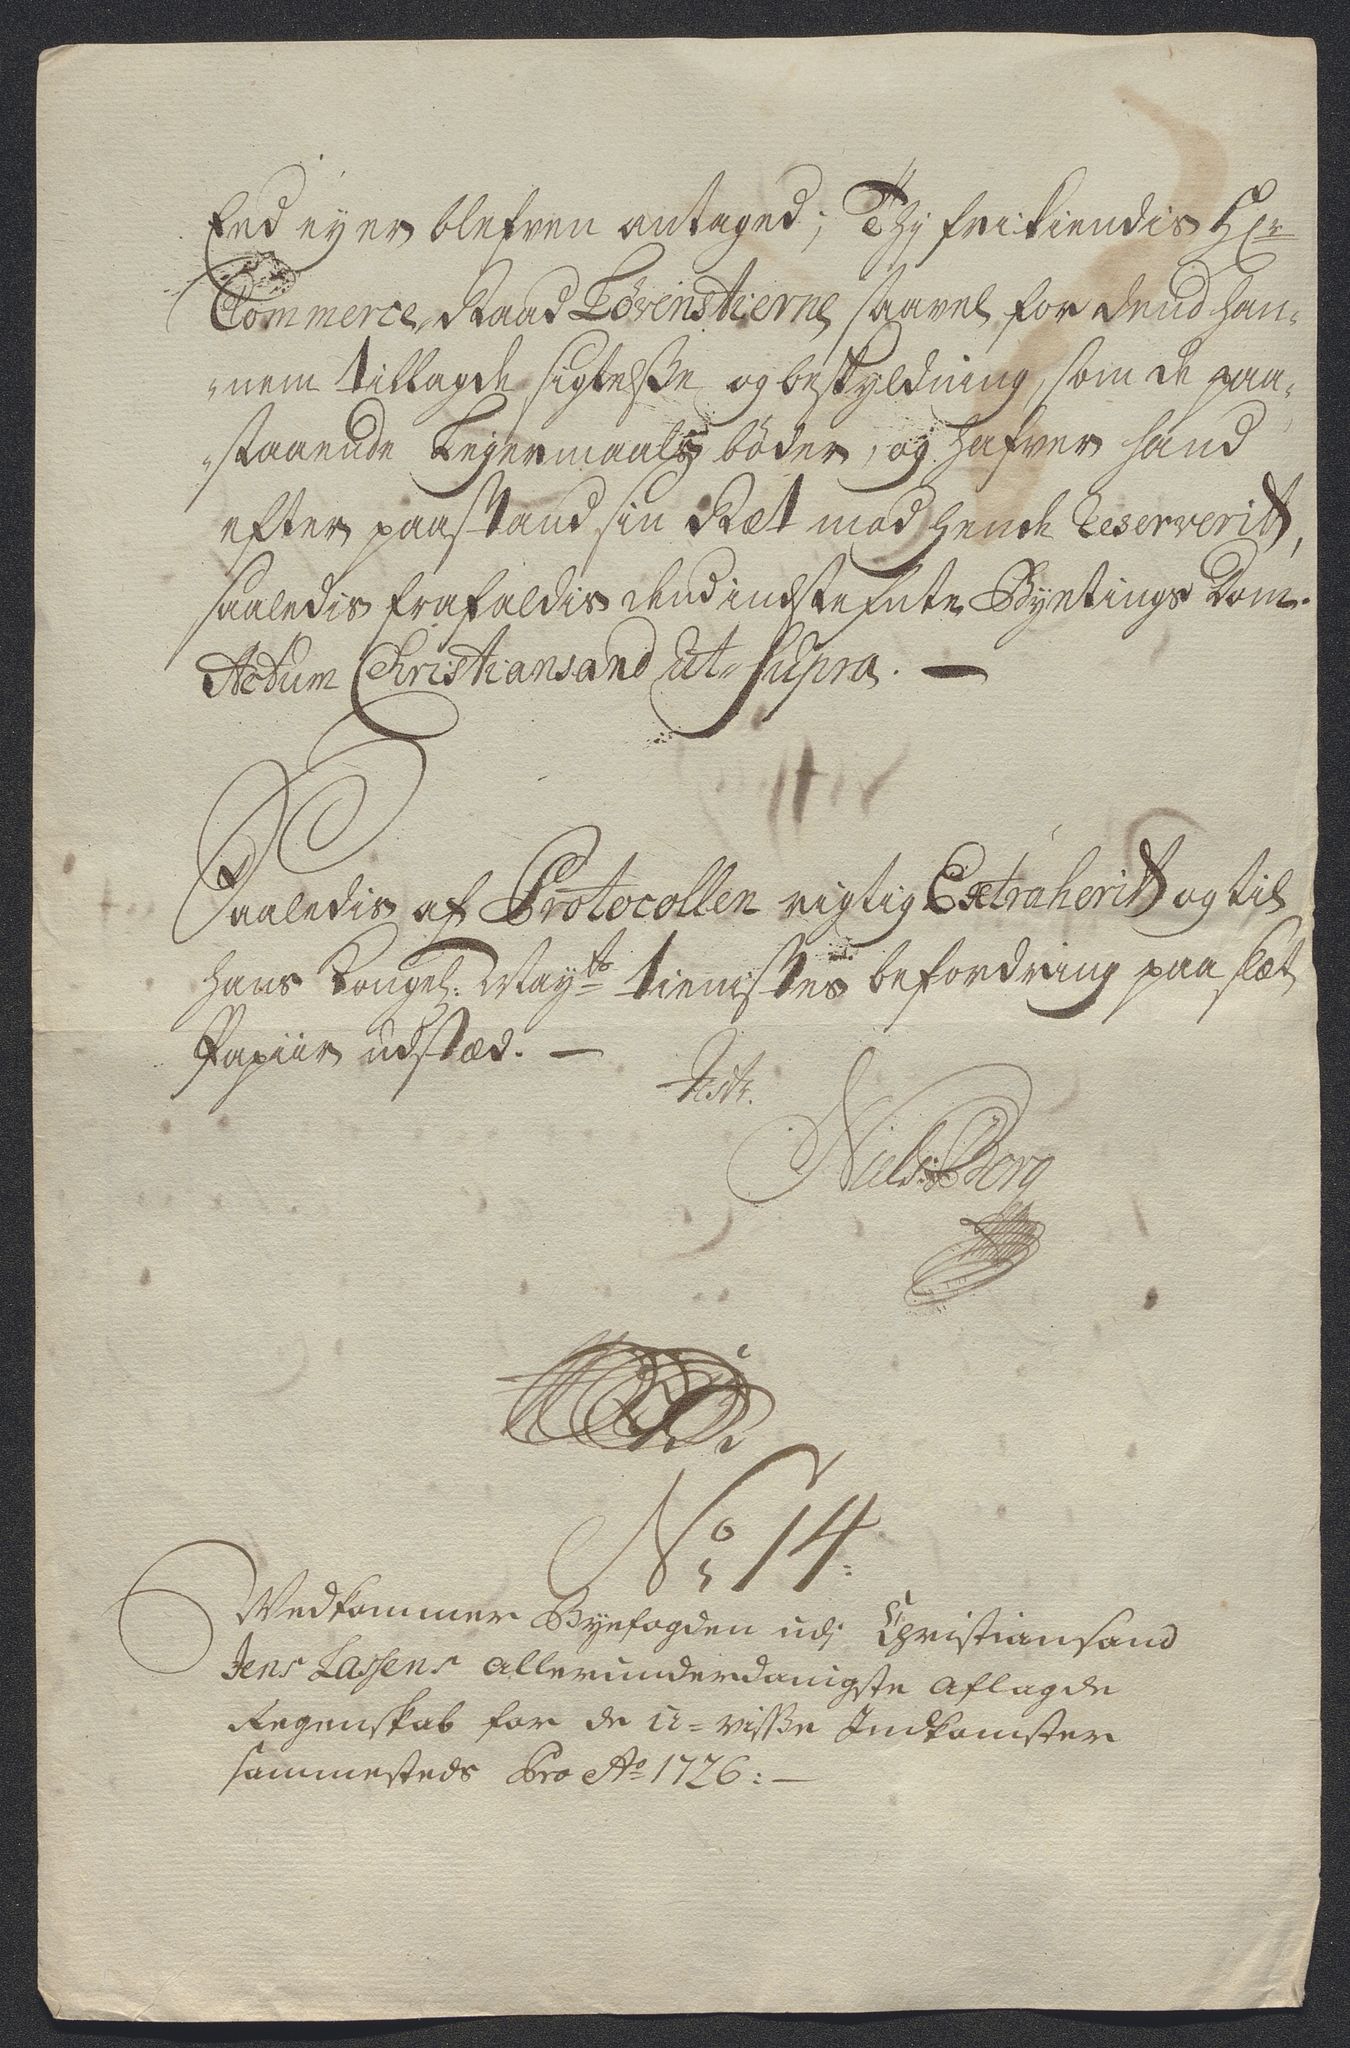 Eed ey er blefven antaged; Thj frikiendis Hr
Commerce Raad Løvenstierne, saavel for dend han-
-nem tillagde sigtelsse og beskyldning, som de paa-
-staaende Leyermaals bøder, og hafver hand
efter paastand sin Ræt mod hende Reserverit,
saaledis frafaldis dend indstefnte Byetings Dom.
Actum Christiansand Ut Supra. —
Saaledis af Protocollen rigtig Extraherit og til
hans Kongel: Mayts tienistes befordring paa slæt
Papiir udstæd. —
Test.
Niels Borg
No 14:
Vedkommer Byefogden udj Christiansand
Jens Lassens allerunderdanigste aflagde
Regenskab for de u-visse Indkomster
sammesteds Pro Ao 1726: —